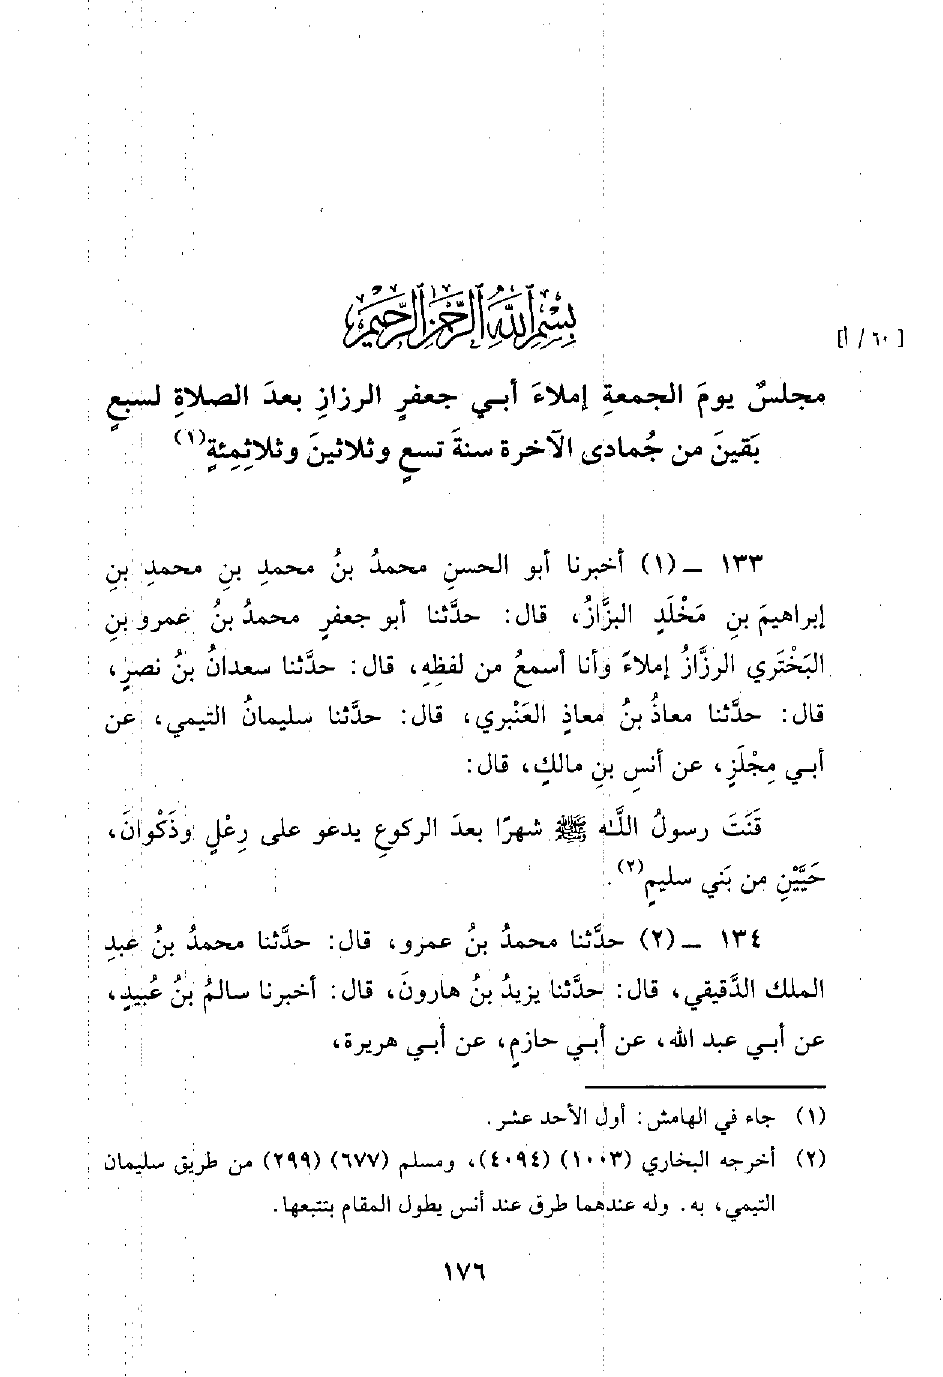 بِسْمِ اللَّهِ الرَّحْمَنِ الرَّحِيمِ
[٦٠ / أ]
مجلسٌ يومَ الجمعةِ إملاءَ أبي جعفرٍ الرزازِ بعدَ الصلاةِ لسبعٍ
بَقينَ من جُمادى الآخرة سنةَ تسعٍ وثلاثينَ وثلاثِمِئةٍ(١)
١٣٣ ـ (١) أخبرنا أبو الحسنِ محمدُ بنُ محمدِ بنِ محمدِ بنِ
إبراهيمَ بنِ مَخْلَدٍ البزَّازُ، قال: حدَّثنا أبو جعفرٍ محمدُ بنُ عمرِو بنِ
البَخْتَري الرزَّازُ إملاءً وأنا أسمعُ من لفظِهِ، قال: حدَّثنا سعدانُ بنُ نصرٍ،
قال: حدَّثنا معاذُ بنُ معاذٍ العَنْبري، قال: حدَّثنا سليمانُ التيمي، عن
أبي مِجْلَزٍ، عن أنسِ بنِ مالكٍ، قال:
قَنَتَ رسولُ اللَّه ﷺ شهرًا بعدَ الركوعِ يدعو على رِعْلٍ وذَكْوانَ،
حَيَّيْنِ مِن بَني سليمٍ(٢).
١٣٤ ـ (٢) حدَّثنا محمدُ بنُ عمرو، قال: حدَّثنا محمدُ بنُ عبدِ
الملك الدَّقيقي، قال: حدَّثنا يزيدُ بنُ هارونَ، قال: أخبرنا سالمُ بنُ عُبيدٍ،
عن أبي عبد الله، عن أبي حازمٍ، عن أبي هريرة،
(١) جاء في الهامش: أول الأحد عشر.
(٢) أخرجه البخاري (١٠٠٣) (٤٠٩٤)، ومسلم (٦٧٧) (٢٩٩) من طريق سليمان
التيمي، به. وله عندهما طرق عند أنس يطول المقام بتتبعها.
١٧٦